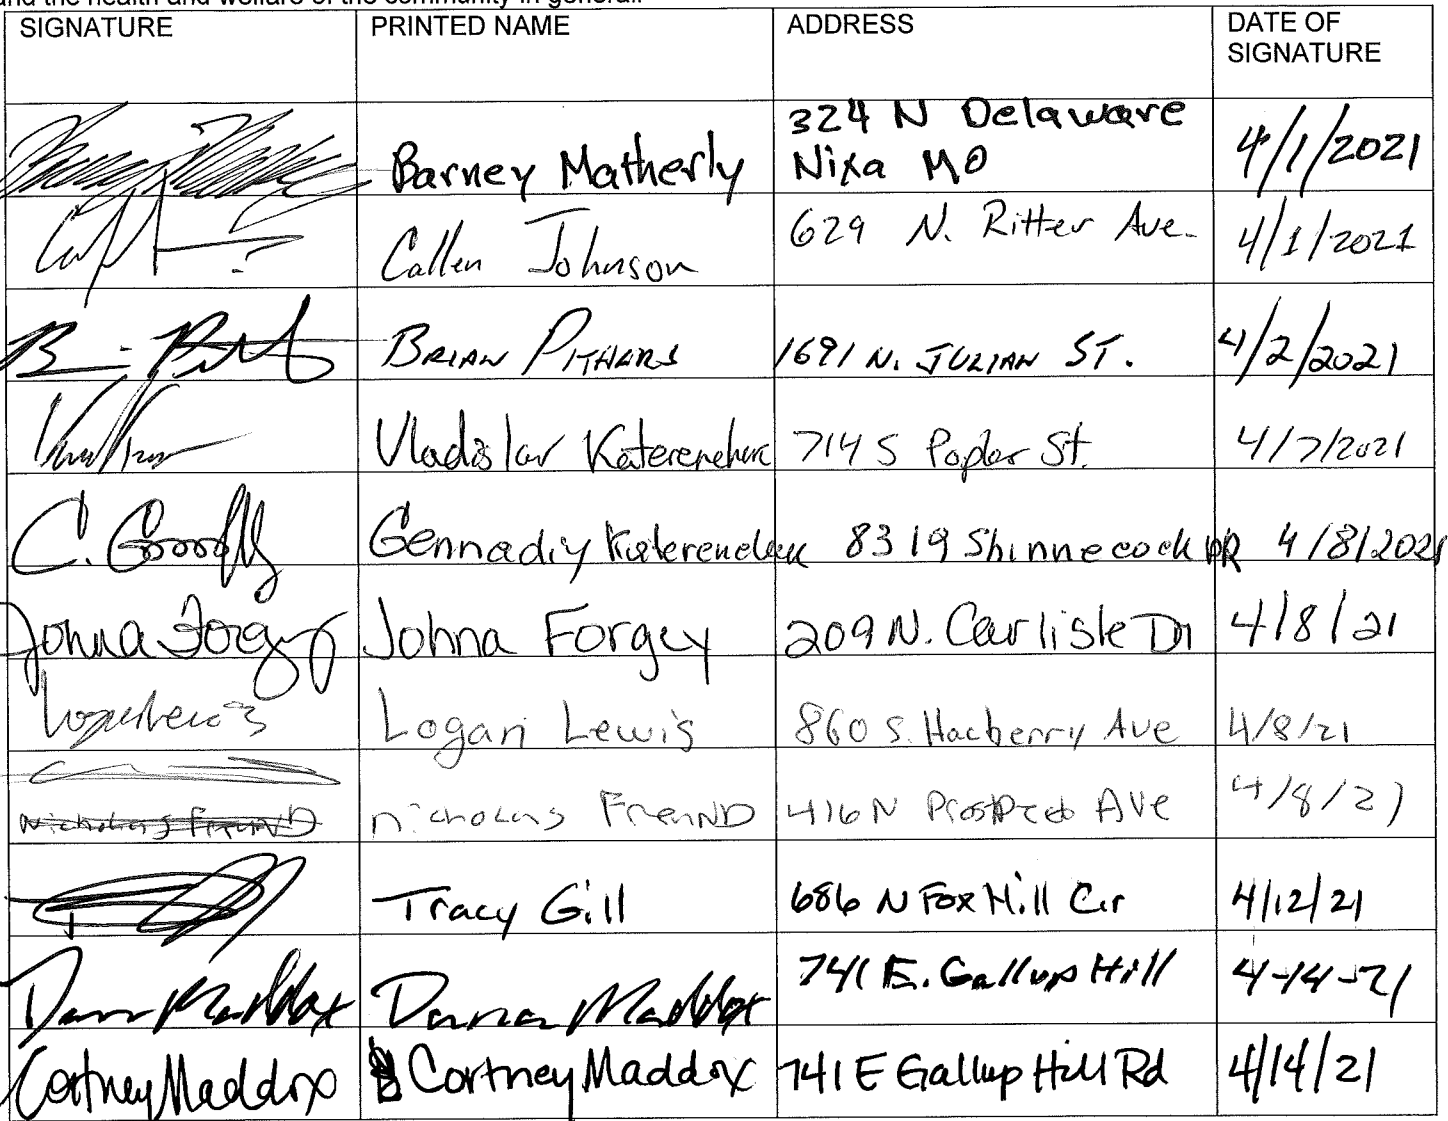 and the health and welfare of the community in general.
SIGNATURE PRINTED NAME ADDRESS DATE OF SIGNATURE
Barney Matherly 324 N Delaware Nixa MO 4/1/2021
Callen Johnson 629 N. Ritter Ave. 4/1/2021
BRIAN 1691 N. JULIAN ST. 4/2/2021
Vladislav 714 S Poplar St. 4/7/2021
C. Gennadiy 8319 Shinnecock DR 4/8/2021
Johna Forgey Johna Forgey 209 N. Carlisle Dr 4/8/21
Logan Lewis Logan Lewis 860 S. Hacberry Ave 4/8/21
Nicholas nicholas 416 N Ave 4/8/21
Tracy Gill 686 N Fox Hill Cir 4/12/21
Maddox Maddox 741 E. Gallup Hill 4-14-21
Cortney Maddox Cortney Maddox 741 E Gallup Hill Rd 4/14/21